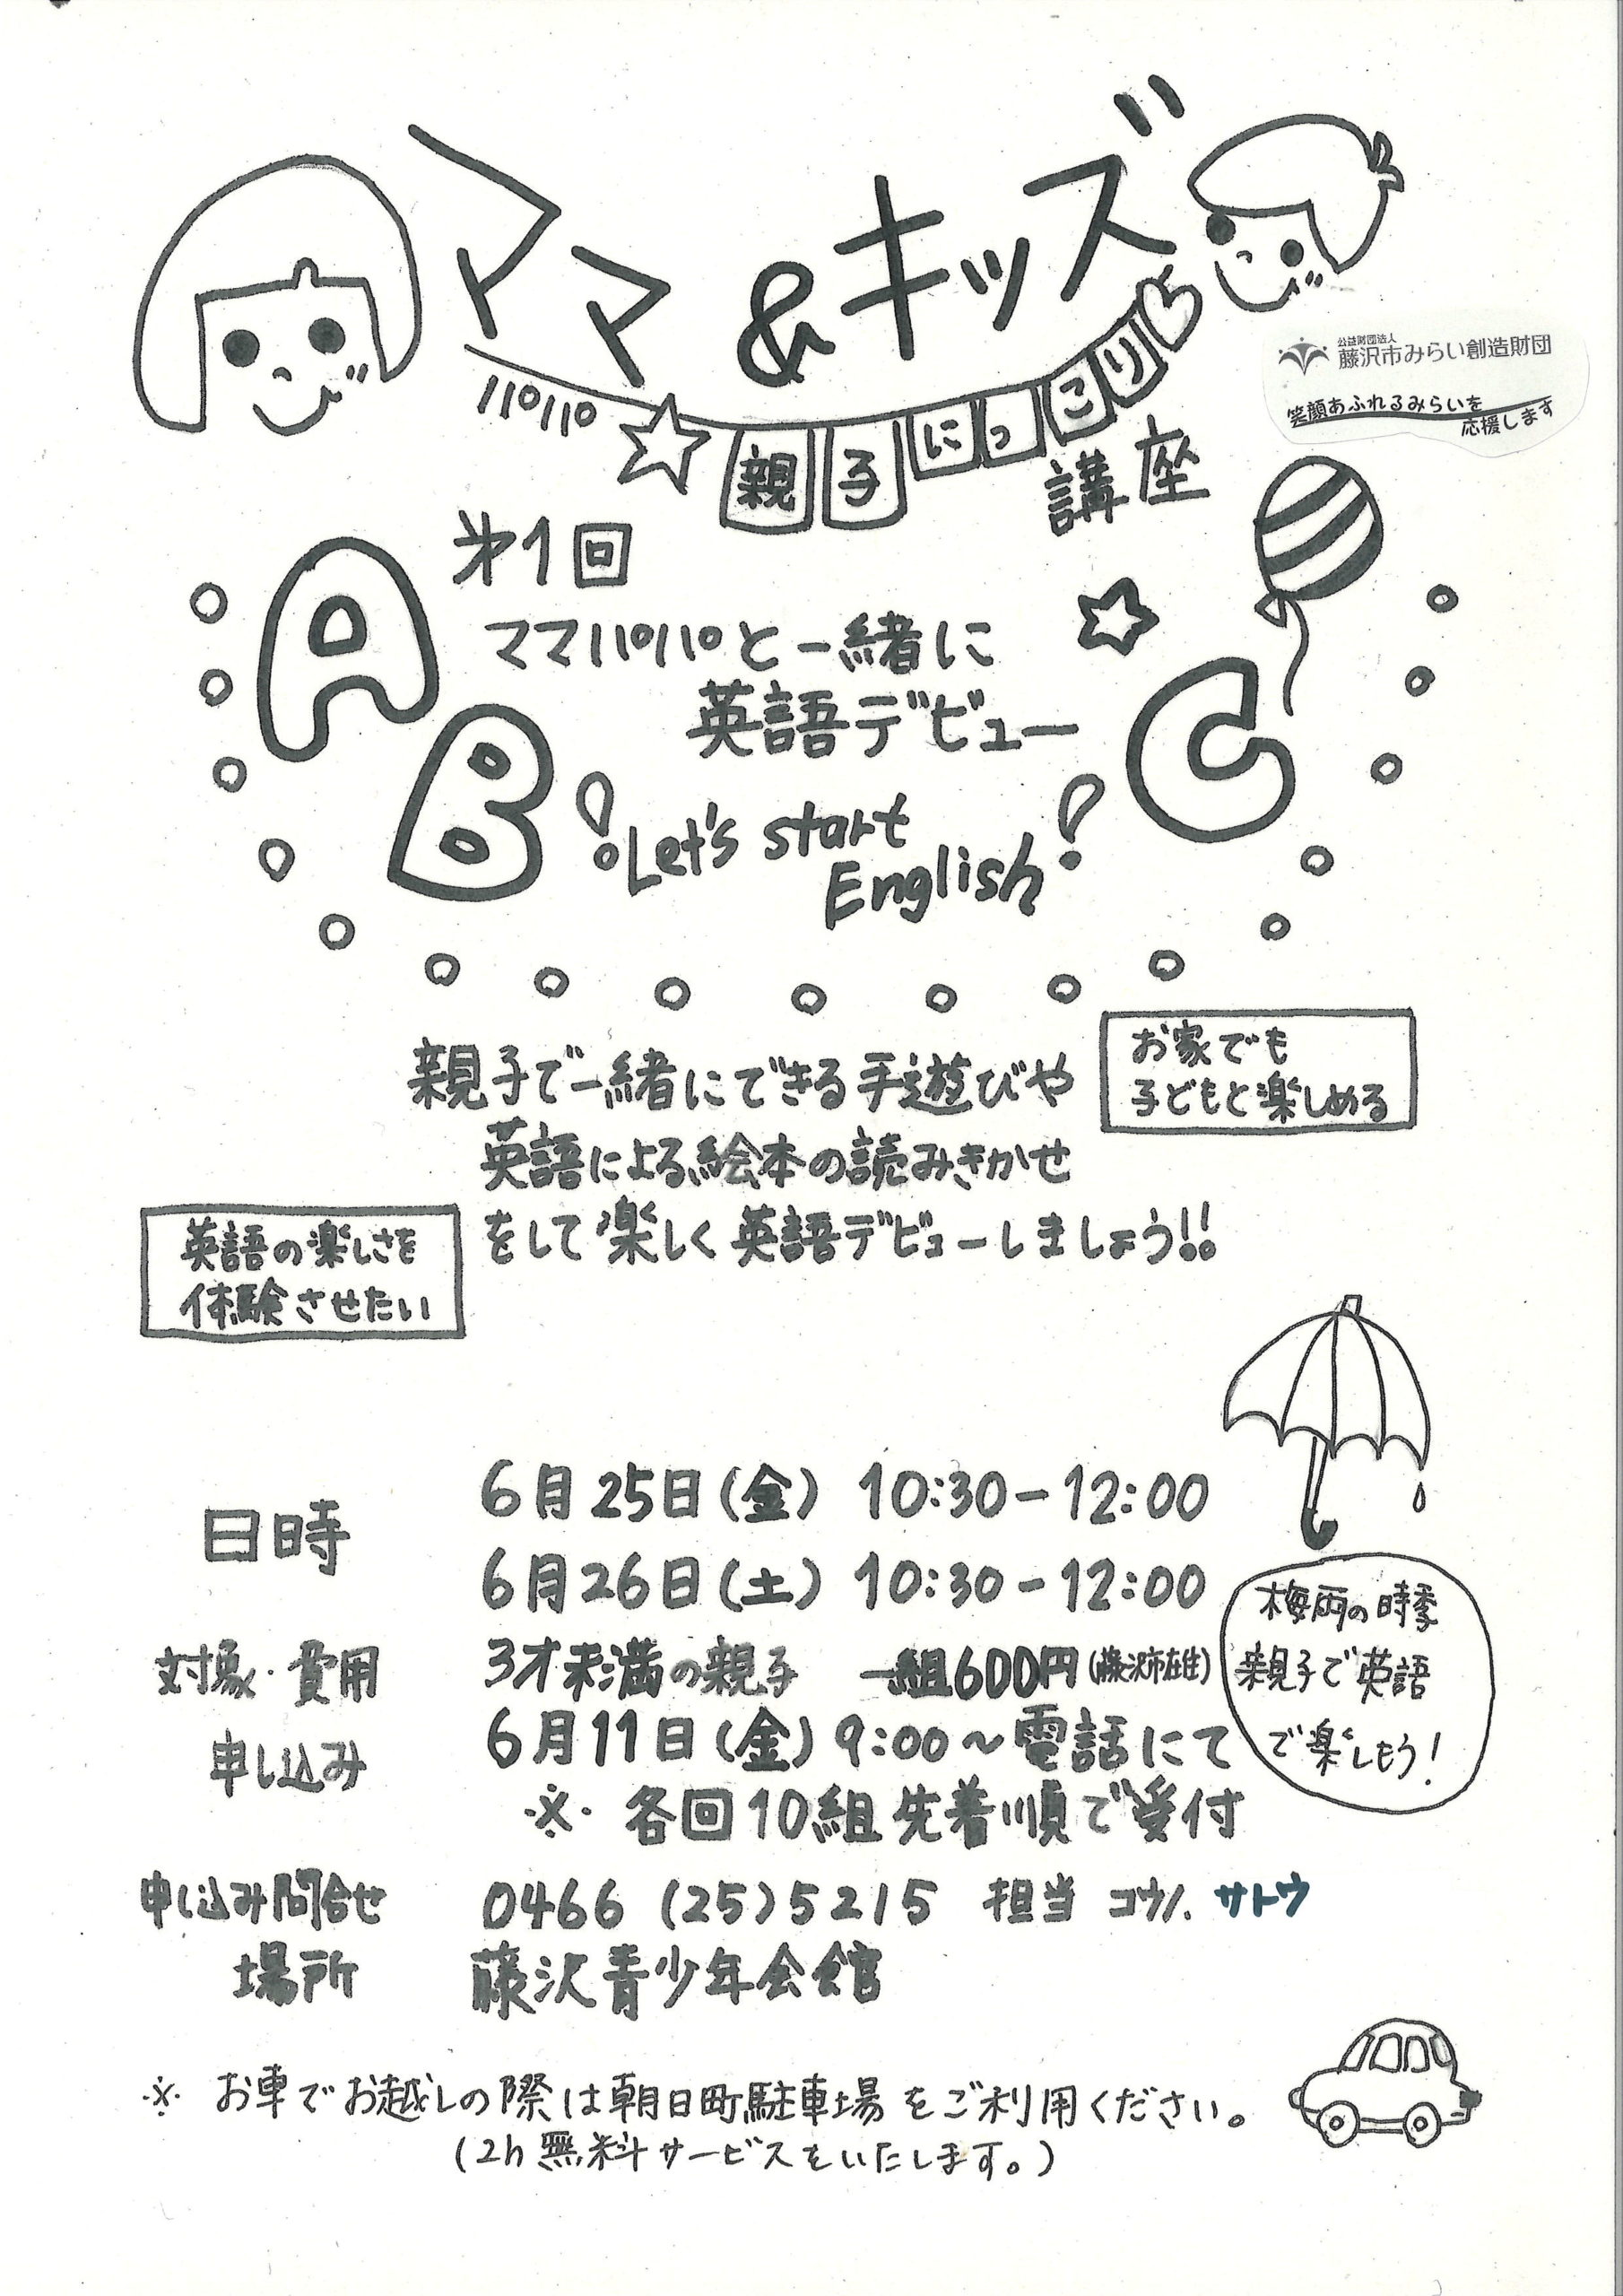 ママ&キッズ
パパ
親子にっこり
講座
公益財団法人
藤沢市みらい創造財団
笑顔あふれるみらいを
応援します
第1回
ママパパと一緒に
英語デビュー
A B C
Let's start
English!
親子で一緒にできる手遊びや
お家でも
子どもと楽しめる
英語による絵本の読みきかせ
をして楽しく英語デビューしましょう!!
英語の楽しさを
体験させたい
日時
6月25日(金) 10:30-12:00
6月26日(土) 10:30-12:00
対象・費用 3才未満の親子 一組600円(藤沢市在住)
申し込み 6月11日(金) 9:00〜電話にて
※ 各回10組先着順で受付
梅雨の時季
親子で英語
で楽しもう!
申し込み問合せ 0466 (25) 5215 担当 コウノ、サトウ
場所 藤沢青少年会館
※ お車でお越しの際は朝日町駐車場をご利用ください。
(2h無料サービスをいたします。)